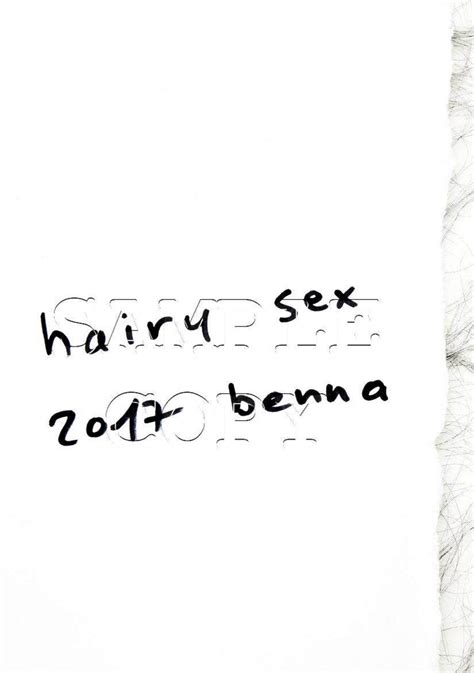 hairy sex
2017 benna
SAMPLE
COPY